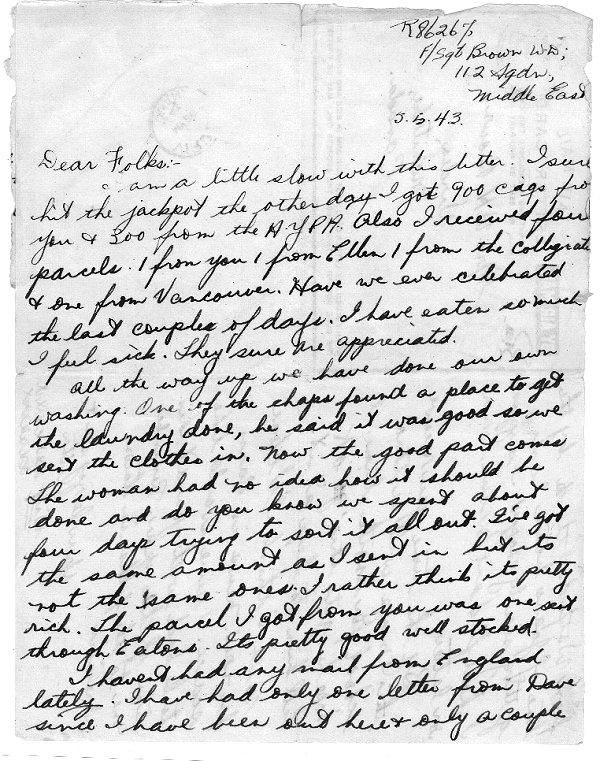 R86267
F/Sgt Brown W.D;
112 Sqdn,
Middle East
5.5.43.
Dear Folks:-
I am a little slow with this letter. I sure
hit the jackpot the other day I got 900 cigs fro
you & 300 from the A.Y.P.A. Also I received four
parcels. 1 from you 1 from Ellen 1 from the Collegiate
& one from Vancouver. Have we ever celebrated
the last couples of days. I have eaten so much
I feel sick. They sure are appreciated.
All the way up we have done our own
washing. One of the chaps found a place to get
the laundry done, he said it was good so we
sent the clothes in. Now the good part comes
The woman had no idea how it should be
done and do you know we spent about
four days trying to sort it all out. I've got
the same amount as I sent in but its
not the same ones. I rather think its pretty
rich. The parcel I got from you was one sent
through Eatons. Its pretty good well stocked.
I havent had any mail from England
lately. I have had only one letter from Dave
since I have been out here & only a couple